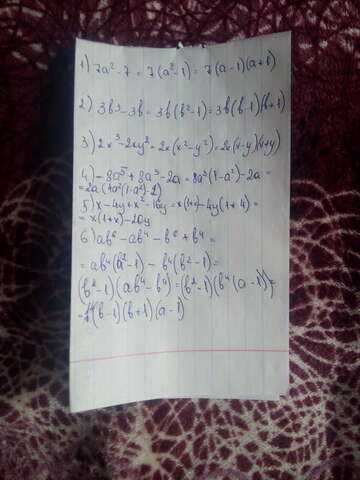 1) 7a² - 7 = 7(a² - 1) = 7(a - 1)(a + 1)
2) 3b³ - 3b = 3b(b² - 1) = 3b(b - 1)(b + 1)
3) 2x³ - 2xy² = 2x(x² - y²) = 2x(x - y)(x + y)
4) - 8a⁵ + 8a³ - 2a = 8a³(1 - a²) - 2a =
= 2a(4a²(1 - a²) - 1)
5) x - 4y + x² - 16y = x(1 + x) - 4y(1 + 4) =
= x(1 + x) - 20y
6) ab⁶ - ab⁴ - b⁶ + b⁴ =
= ab⁴(b² - 1) - b⁴(b² - 1) =
(b² - 1)(ab⁴ - b⁴) = (b² - 1)(b⁴(a - 1)) =
= b⁴(b - 1)(b + 1)(a - 1)